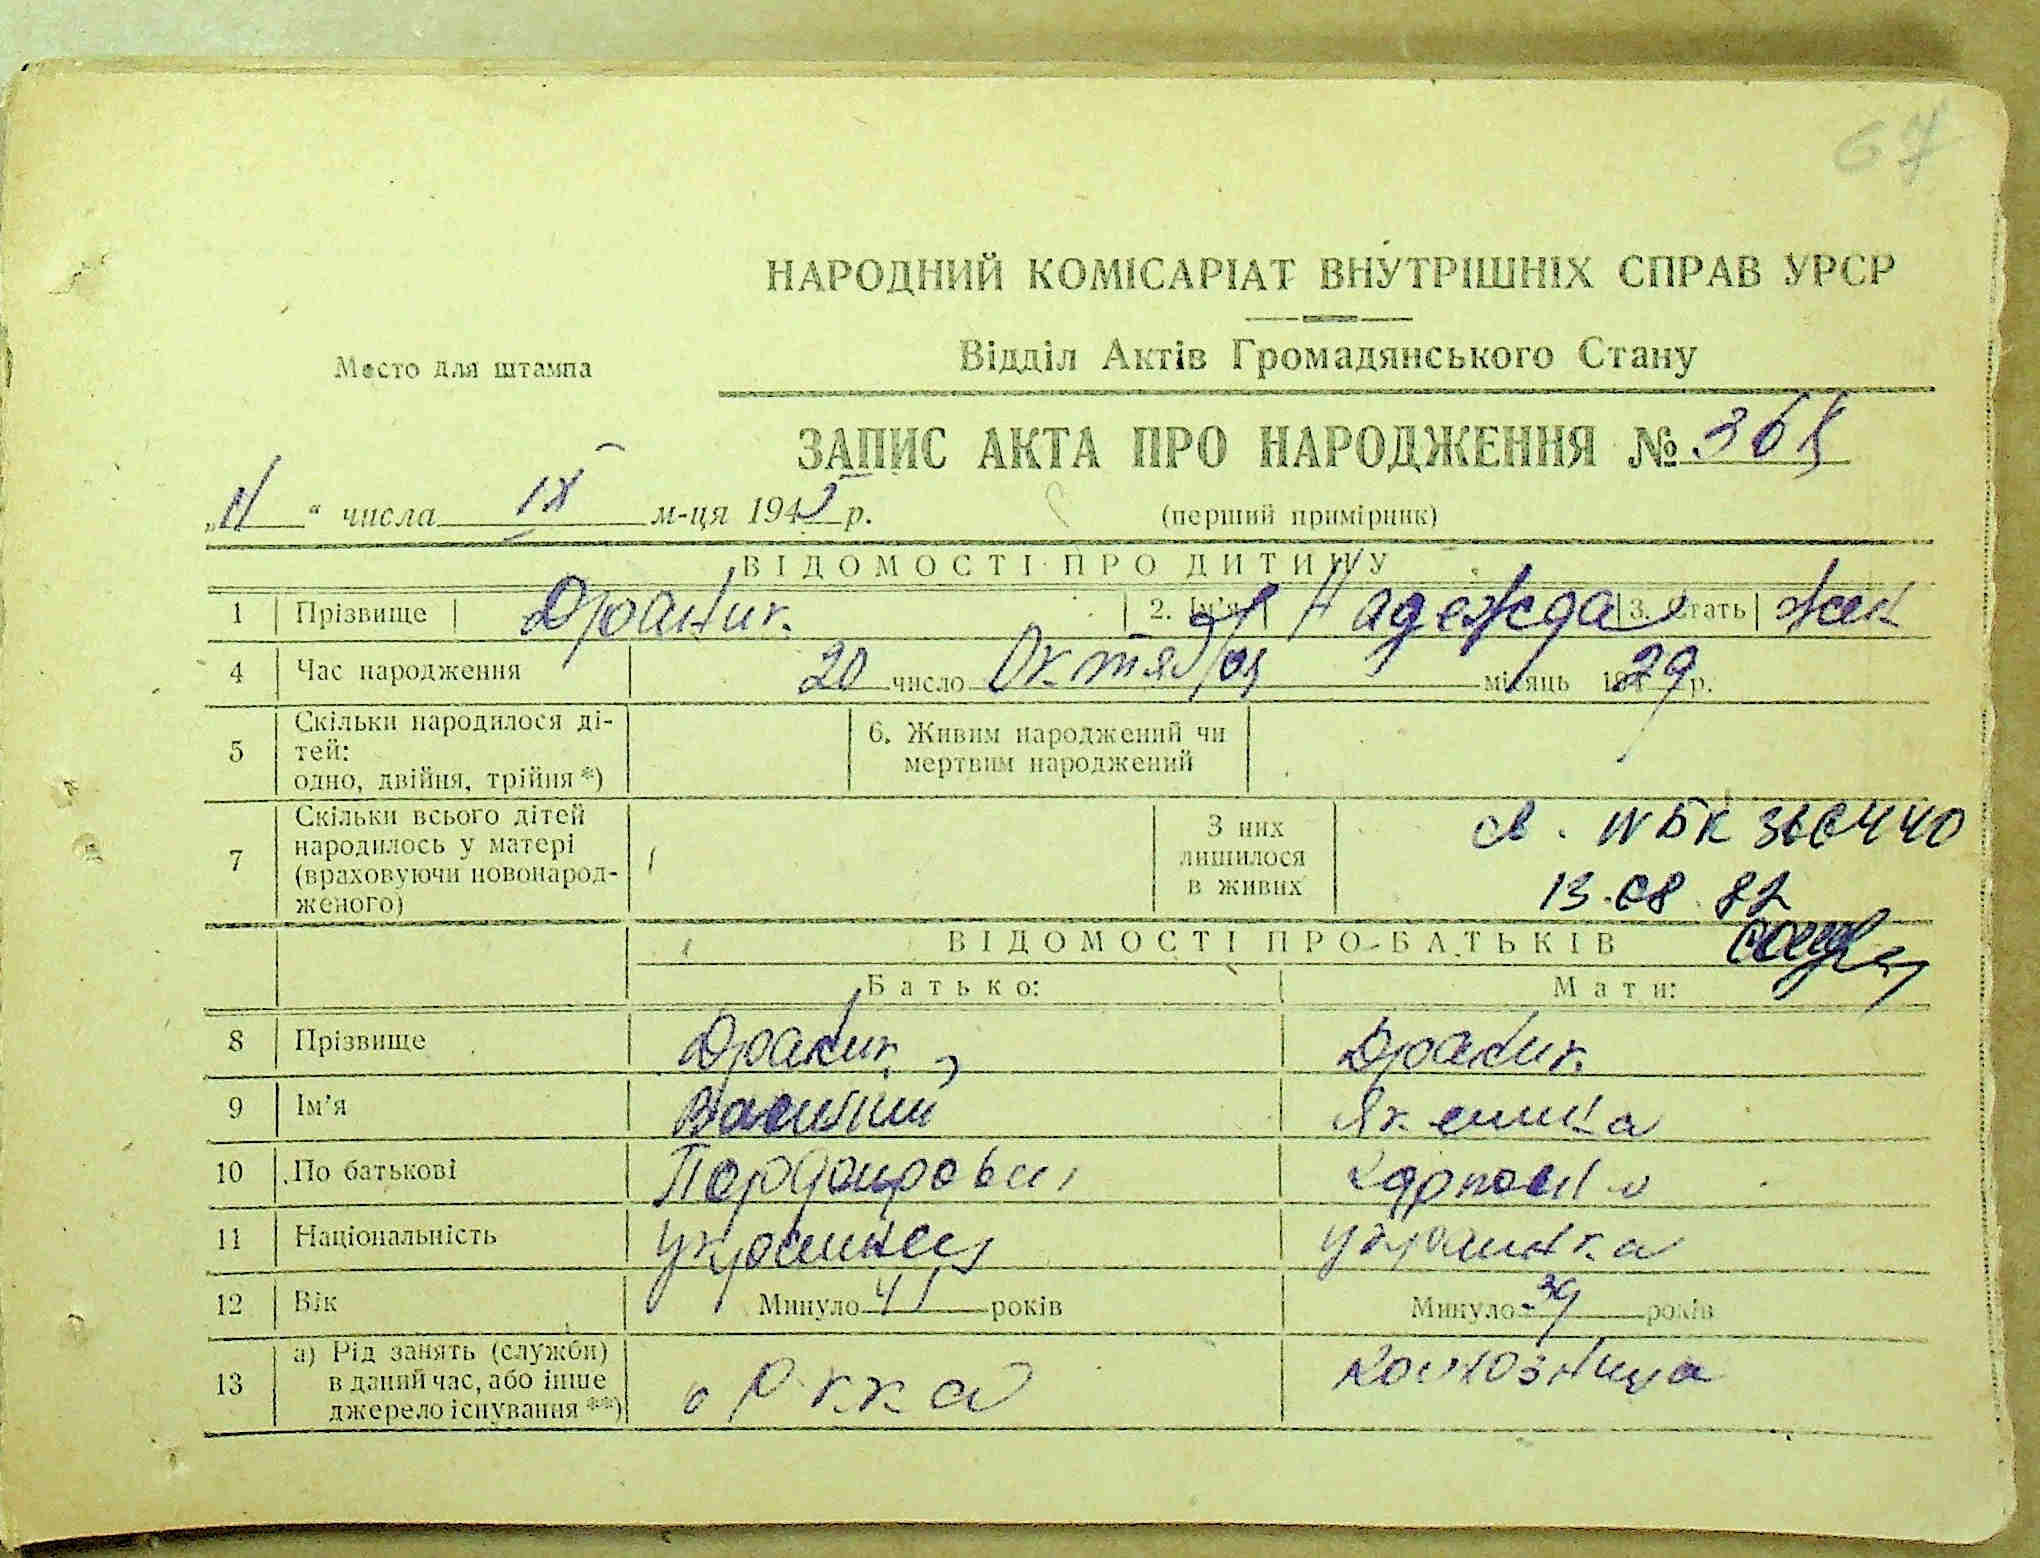 67
НАРОДНИЙ КОМІСАРІАТ ВНУТРІШНІХ СПРАВ УРСР
Відділ Актів Громадянського Стану
Место для штампа
ЗАПИС АКТА ПРО НАРОДЖЕННЯ №
„11“ числа IX м-ця 1945 р. (перший примірник)
ВІДОМОСТІ ПРО ДИТИНУ
1 Прізвище 2. Ім'я Надежда 3. Стать жен
4 Час народження 20 число Октября місяць 1929 р.
5 Скільки народилося ді-
тей:
одно, двійня, трійня *)
6. Живим народжений чи
мертвим народжений
7 Скільки всього дітей
народилось у матері
(враховуючи новонарод-
женого)
З них
лишилося
в живих
св. ІѴБК 366440
13.08.82
ВІДОМОСТІ ПРО БАТЬКІВ
Батько: Мати:
8 Прізвище Драник Драник
9 Ім'я Василий
10 По батькові
11 Національність украинец украинка
12 Вік Минуло 41 років Минуло 39 років
13 а) Рід занять (служби)
в даний час, або інше
джерело існування **)
в Ркка колхозница